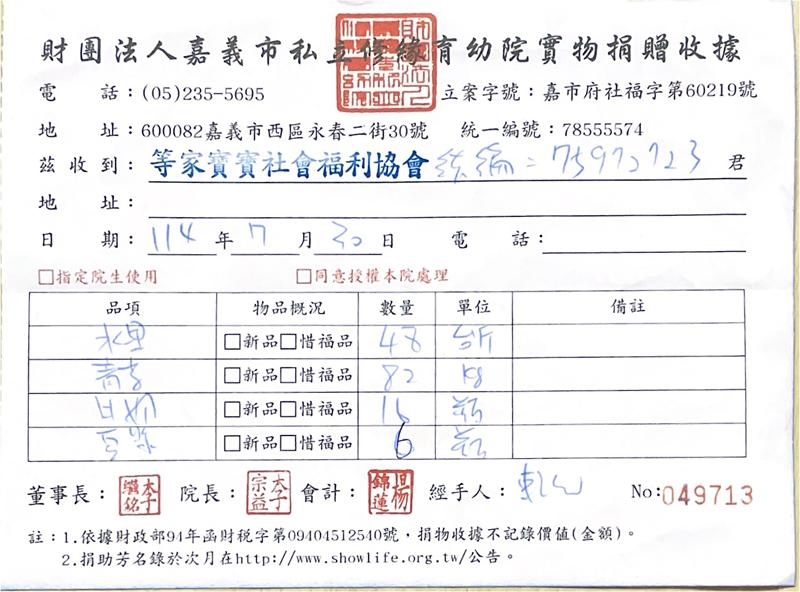 財團法人嘉義市私立修緣育幼院實物捐贈收據
電 話：(05)235-5695 立案字號：嘉市府社福字第60219號
地 址：600082嘉義市西區永春二街30號 統一編號：78555574
茲收到：等家寶寶社會福利協會 統編：75972723 君
地 址：
日 期：114年7月30日 電 話：
□指定院生使用 □同意授權本院處理
品項 物品概況 數量 單位 備註
水果 □新品□惜福品 48 台斤
□新品□惜福品 82 kg
□新品□惜福品 16
□新品□惜福品 6
董事長： 院長： 會計： 經手人： No:049713
註：1.依據財政部94年函財稅字第09404512540號，捐物收據不記錄價值(金額)。
2.捐助芳名錄於次月在http://www.showlife.org.tw/公告。